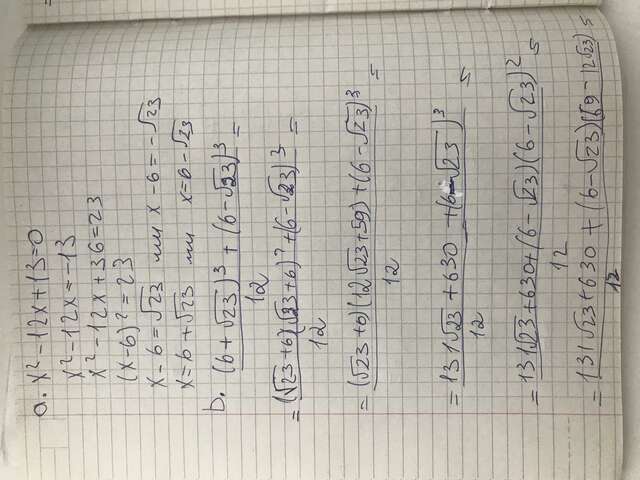 a. x² - 12x + 13 = 0
x² - 12x = -13
x² - 12x + 36 = 23
(x-6)² = 23
x - 6 = √23 или x - 6 = -√23
x = 6 + √23 или x = 6 - √23
b. ((6+√23)³ + (6-√23)³)/12 =
= ((√23+6)(√23+6)² + (6-√23)³)/12 =
= ((√23+6)(12√23+59) + (6-√23)³)/12 =
= (131√23 + 630 + (6-√23)³)/12 =
= (131√23 + 630 + (6-√23)(6-√23)²)/12 =
= (131√23 + 630 + (6-√23)(59-12√23))/12 =